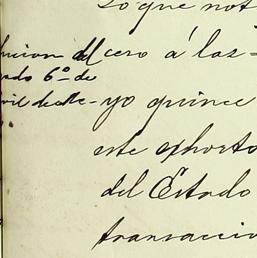 lo que not
cion del
cero á las
ado 6º de
yo quince
este exhorto
del Estado
transaccio